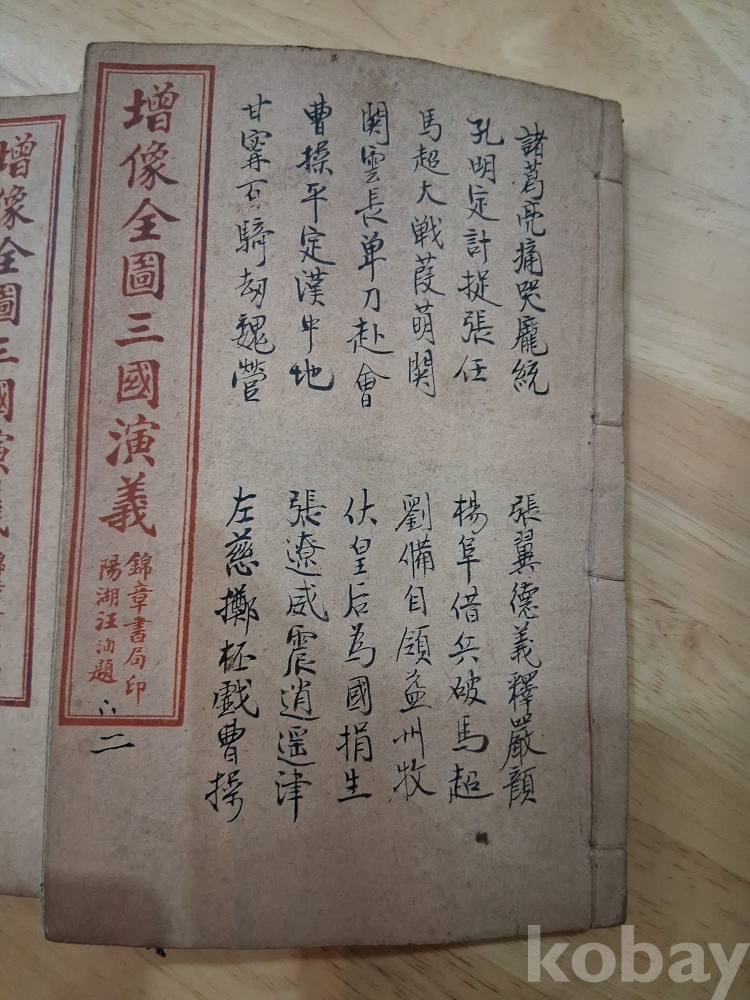 諸葛亮痛哭龐統
張翼德義釋嚴顔
孔明定計捉張任
楊阜借兵破馬超
馬超大戦葭萌関
劉備自領益州牧
関雲長单刀赴會
伏皇后為國捐生
曹操平定漢中地
張遼威震逍遥津
甘寜百騎劫魏營
左慈擲杯戲曹操
增像全圖三國演義
錦章書局印
陽湖汪洵題
二
增像全圖三國演義
kobay